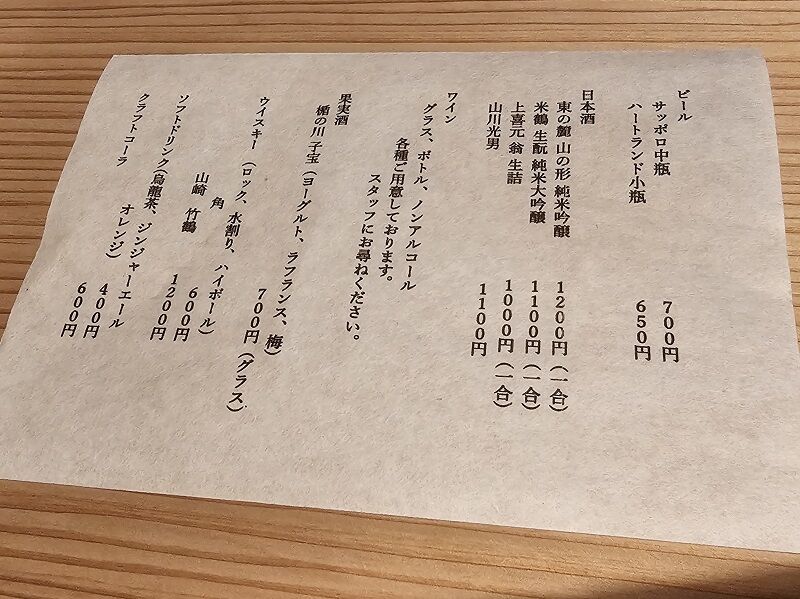 ビール
サッポロ中瓶 700円
ハートランド小瓶 650円
日本酒
東の麓 山の形 純米吟醸 1200円(一合)
米鶴 生酛 純米大吟醸 1100円(一合)
上喜元 翁 生詰 1000円(一合)
山川光男 1100円
ワイン
グラス、ボトル、ノンアルコール
各種ご用意しております。
スタッフにお尋ねください。
果実酒
楯の川 子宝(ヨーグルト、ラフランス、梅)
700円(グラス)
ウイスキー(ロック、水割り、ハイボール)
角 600円
山崎 竹鶴 1200円
ソフトドリンク(烏龍茶、ジンジャーエール
オレンジ) 400円
クラフトコーラ 600円